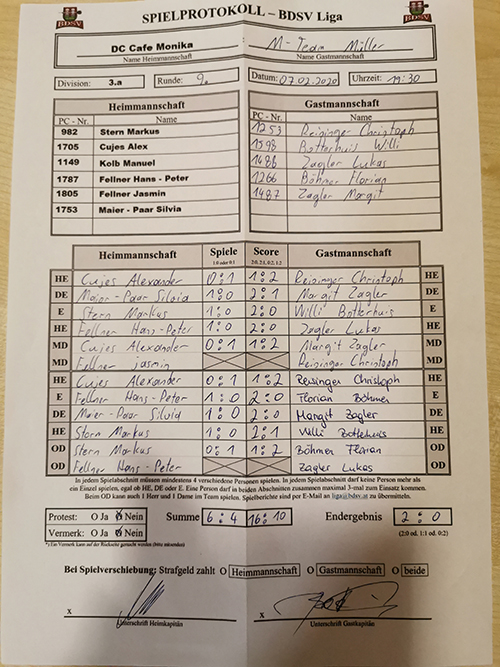 SPIELPROTOKOLL – BDSV Liga
BDSV BDSV
DC Cafe Monika : M-Team Müller
Name Heimmannschaft Name Gastmannschaft
Division: 3.a Runde: 9. Datum: 07.02.2020 Uhrzeit: 19:30
Heimmannschaft Gastmannschaft
PC - Nr. Name PC - Nr. Name
982 Stern Markus 1253 Reininger Christoph
1705 Cujes Alex 1598 Botterhuis Willi
1149 Kolb Manuel 1488 Zagler Lukas
1787 Fellner Hans - Peter 1266 Böhmer Florian
1805 Fellner Jasmin 1487 Zagler Margit
1753 Maier - Paar Silvia
Heimmannschaft Spiele Score Gastmannschaft
1:0 oder 0:1 2:0, 2:1, 0:2, 1:2
HE Cujes Alexander 0:1 1:2 Reininger Christoph HE
DE Maier-Paar Silvia 1:0 2:1 Margit Zagler DE
E Stern Markus 1:0 2:0 Willi Botterhuis E
HE Fellner Hans-Peter 1:0 2:0 Zagler Lukas HE
MD Cujes Alexander 0:1 1:2 Margit Zagler MD
MD Fellner jasmin Reininger Christoph MD
HE Cujes Alexander 0:1 1:2 Reisinger Christoph HE
E Fellner Hans-Peter 1:0 2:0 Florian Böhmer E
DE Maier-Paar Silvia 1:0 2:0 Margit Zagler DE
HE Stern Markus 1:0 2:1 Willi Bottehuis HE
OD Stern Markus 0:1 1:2 Böhmer Florian OD
OD Fellner Hans-Peter Zagler Lukas OD
In jedem Spielabschnitt müssen mindestens 4 verschiedene Personen spielen. In jedem Spielabschnitt darf keine Person mehr als
ein Einzel spielen, egal ob HE, DE oder E. Eine Person darf in beiden Abschnitten zusammen maximal 3-mal zum Einsatz kommen.
Beim OD kann auch 1 Herr und 1 Dame im Team spielen. Spielberichte sind per E-Mail an liga@bdsv.at zu übermitteln.
Protest: O Ja O Nein Summe 6:4 16:10 Endergebnis 2:0
Vermerk: O Ja O Nein (2:0 od. 1:1 od. 0:2)
*) Ein Vermerk kann auf der Rückseite gemacht werden (bitte umseiten)
Bei Spielverschiebung: Strafgeld zahlt O Heimmannschaft O Gastmannschaft O beide
x x
Unterschrift Heimkapitän Unterschrift Gastkapitän